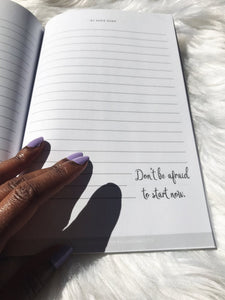 Don't be afraid
to start now.